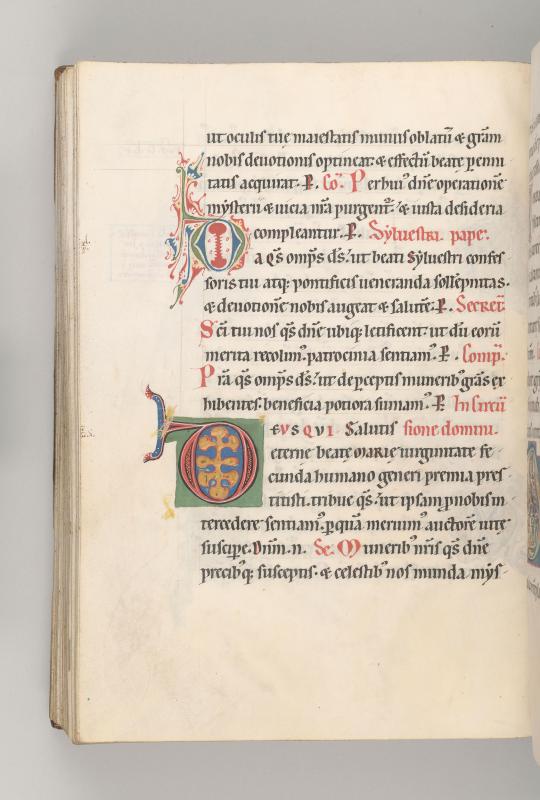 ut oculis tue maiestatis munus oblatū & grām
nobis deuotionis optineat. & effectū beate pennı
tatis acquirat. P. Cō. Perhui᷒ dn̄e operatione
mysterii & uicia nr̄a purgent᷑. & iusta desideria
compleantur. P. Syluestri pape.
DA q̄s omp̄s ds̄. ut beati Syluestri confes
soris tui atq; pontificis ueneranda sollēpnitas.
& deuotionē nobis augeat & salutē. P. Secret̄.
Sc̄i tui nos q̄s dn̄e ubiq; letificent. ut dū eorū
merita recolim᷒. patrocinia sentiam᷒. P. Comp̄.
Pr̄a q̄s omp̄s ds̄. ut de perceptis munerib᷒ grās ex
hibentes. beneficia potiora sumam᷒. P. In circū
DEUS QUI Salutis sione domini.
eterne beate marie uirginitate fe
cunda humano generi premia pres
titisti. tribue q̄s. ut ipsam p nobis in
tercedere sentiam᷒. p quā meruim᷒ auctorē uite
suscipe. Dn̄m. n. Se. Munerib᷒ nr̄is q̄s dn̄e
precibq; susceptis. & celestib᷒ nos munda mys